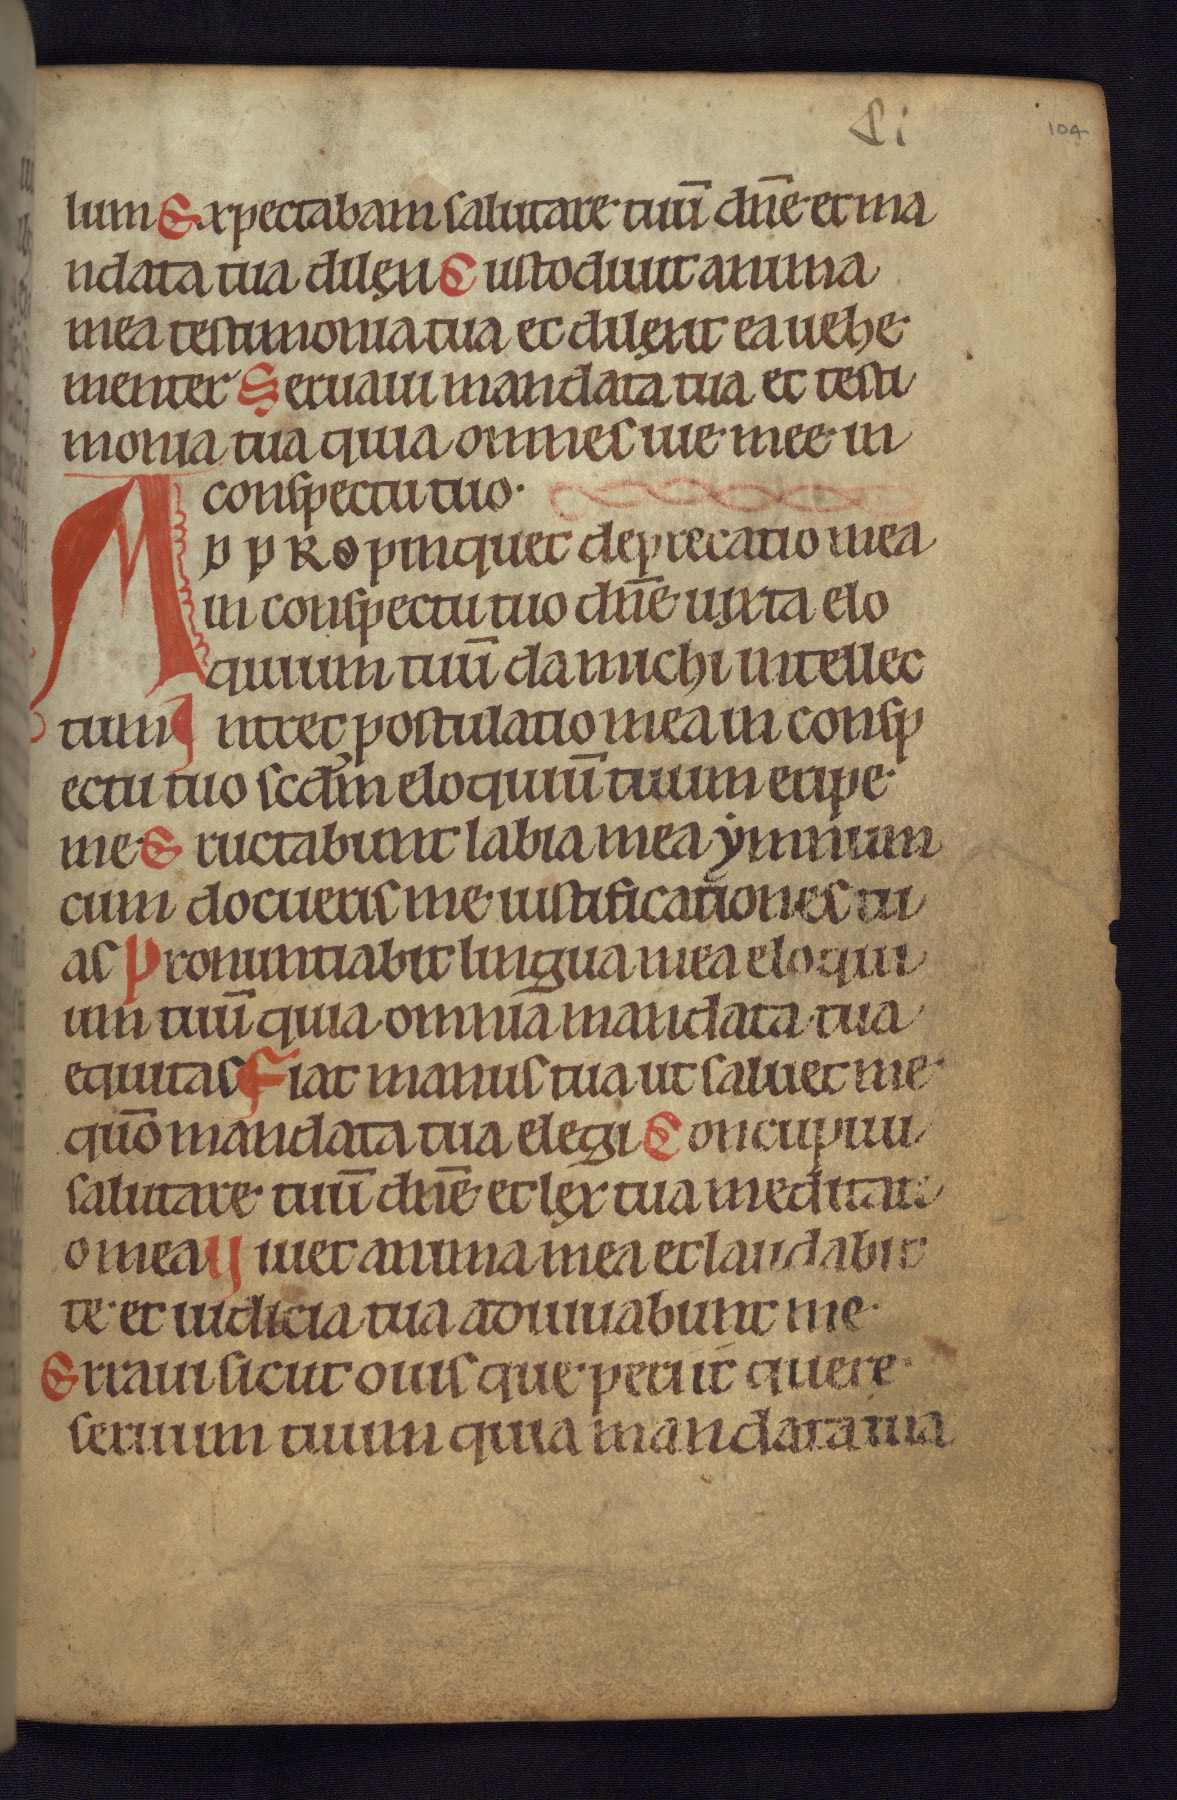 Li
104
lum Expectabam salutare tuū dn̄e et ma
ndata tua dilexi Custodiuit anima
mea testimonia tua et dilexit ea uehe
menter Seruaui mandata tua et testi
monia tua quia omnes uie mee in
conspectu tuo.
Appropinquet deprecatio mea
in conspectu tuo dn̄e iuxta elo
quium tuū da michi intellec
tum Intret postulatio mea in consp
ectu tuo scd̄m eloquiū tuum eripe
me Eructabunt labia mea ymnum
cum docueris me iustificationes tu
as Pronuntiabit lingua mea eloqui
um tuū quia omnia mandata tua
equitas Fiat manus tua ut saluet me
quō mandata tua elegi Concupiui
salutare tuū dn̄e et lex tua meditati
o mea Viuet anima mea et laudabit
te et iudicia tua adiuuabunt me.
Erraui sicut ouis que periit quere
seruum tuum quia mandata tua